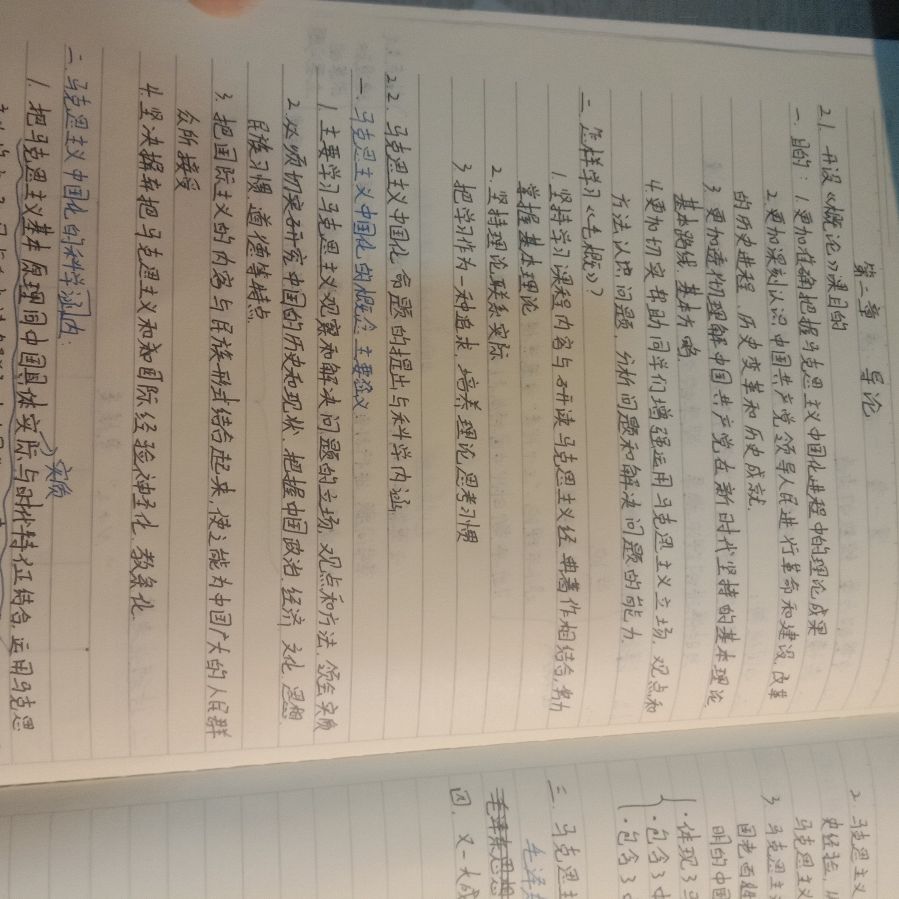 第二章 导论
2.1. 开设《概论》课目的
一、目的：1.更加准确把握马克思主义中国化进程中的理论成果
2.更加深刻认识中国共产党领导人民进行革命和建设、改革
的历史进程、历史变革和历史成就.
3.更加透彻理解中国共产党在新时代坚持的基本理论
基本路线、基本方略
4.更加切实帮助同学们增强运用马克思主义立场、观点和
方法认识问题、分析问题和解决问题的能力
二、怎样学习《毛概》？
1.坚持学习课程内容与研读马克思主义经典著作相结合,努力
掌握基本理论
2.坚持理论联系实际
3.把学习作为一种追求,培养理论思考习惯
2.2 马克思主义中国化命题的提出与科学内涵
一、马克思主义中国化的概念、主要涵义：
1.主要学习马克思主义观察和解决问题的立场,观点和方法.领会实质
2.必须切实研究中国的历史和现状,把握中国政治.经济.文化.思想.
民族习惯.道德等特点.
3.把国际主义的内容与民族形式结合起来,使之能为中国广大的人民群
众所接受
4.坚决摒弃把马克思主义和和国际经验神圣化、教条化.
二、马克思主义中国化的科学涵内：
实质
1.把马克思主义基本原理同中国具体实际与时代特征结合,运用马克思
2.马克思主义
史经验,
马克思主义
3.马克思主
国老百姓
明的中国
·体现3
·包含3
·包含3
三、马克思主
毛泽东思想
四、又一大成